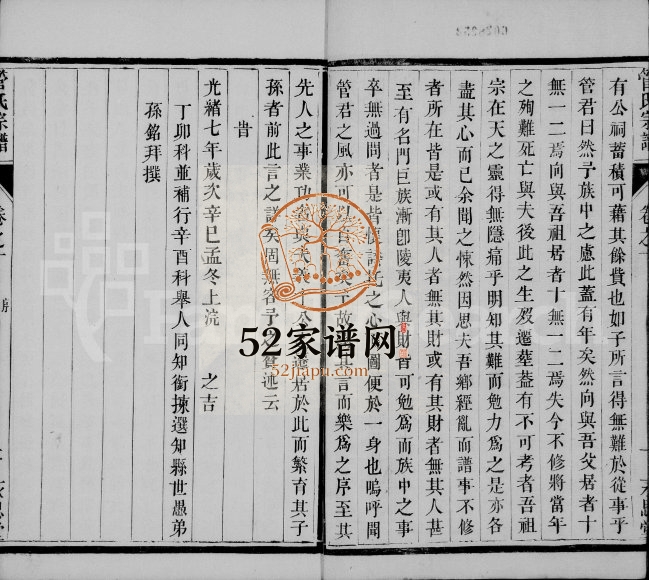 有公祠蓄積可藉其餘費也如子所言得無難於從事乎
管君曰然予族中之慮此蓋有年矣然向與吾父居者十
無一二焉向與吾祖居者十無一二焉失今不修將當年
之殉難死亡與夫後此之生娶遷塟盡有不可考者吾祖
宗在天之靈得無隱痛乎明知其難而勉力為之是亦各
盡其心而已余聞之悚然因思夫吾鄉經亂而譜事不修
者所在皆是或有其人者無其財或有其財者無其人甚
至有名門巨族漸卽陵夷人與財皆可勉為而族中之事
卒無過問者是皆 之心 圖便於一身也嗚呼聞
管君之風亦可 其言而樂為之序至其
先人之事業功 遷居於此而繁育其子
孫者前此言之詳矣固無 云
旹
光緒七年歲次辛巳孟冬上浣 之吉
丁卯科並補行辛酉科舉人同知銜揀選知縣世愚弟
孫銘拜撰
管氏宗譜
管氏宗譜
卷之
52家谱网
52jiapu.com